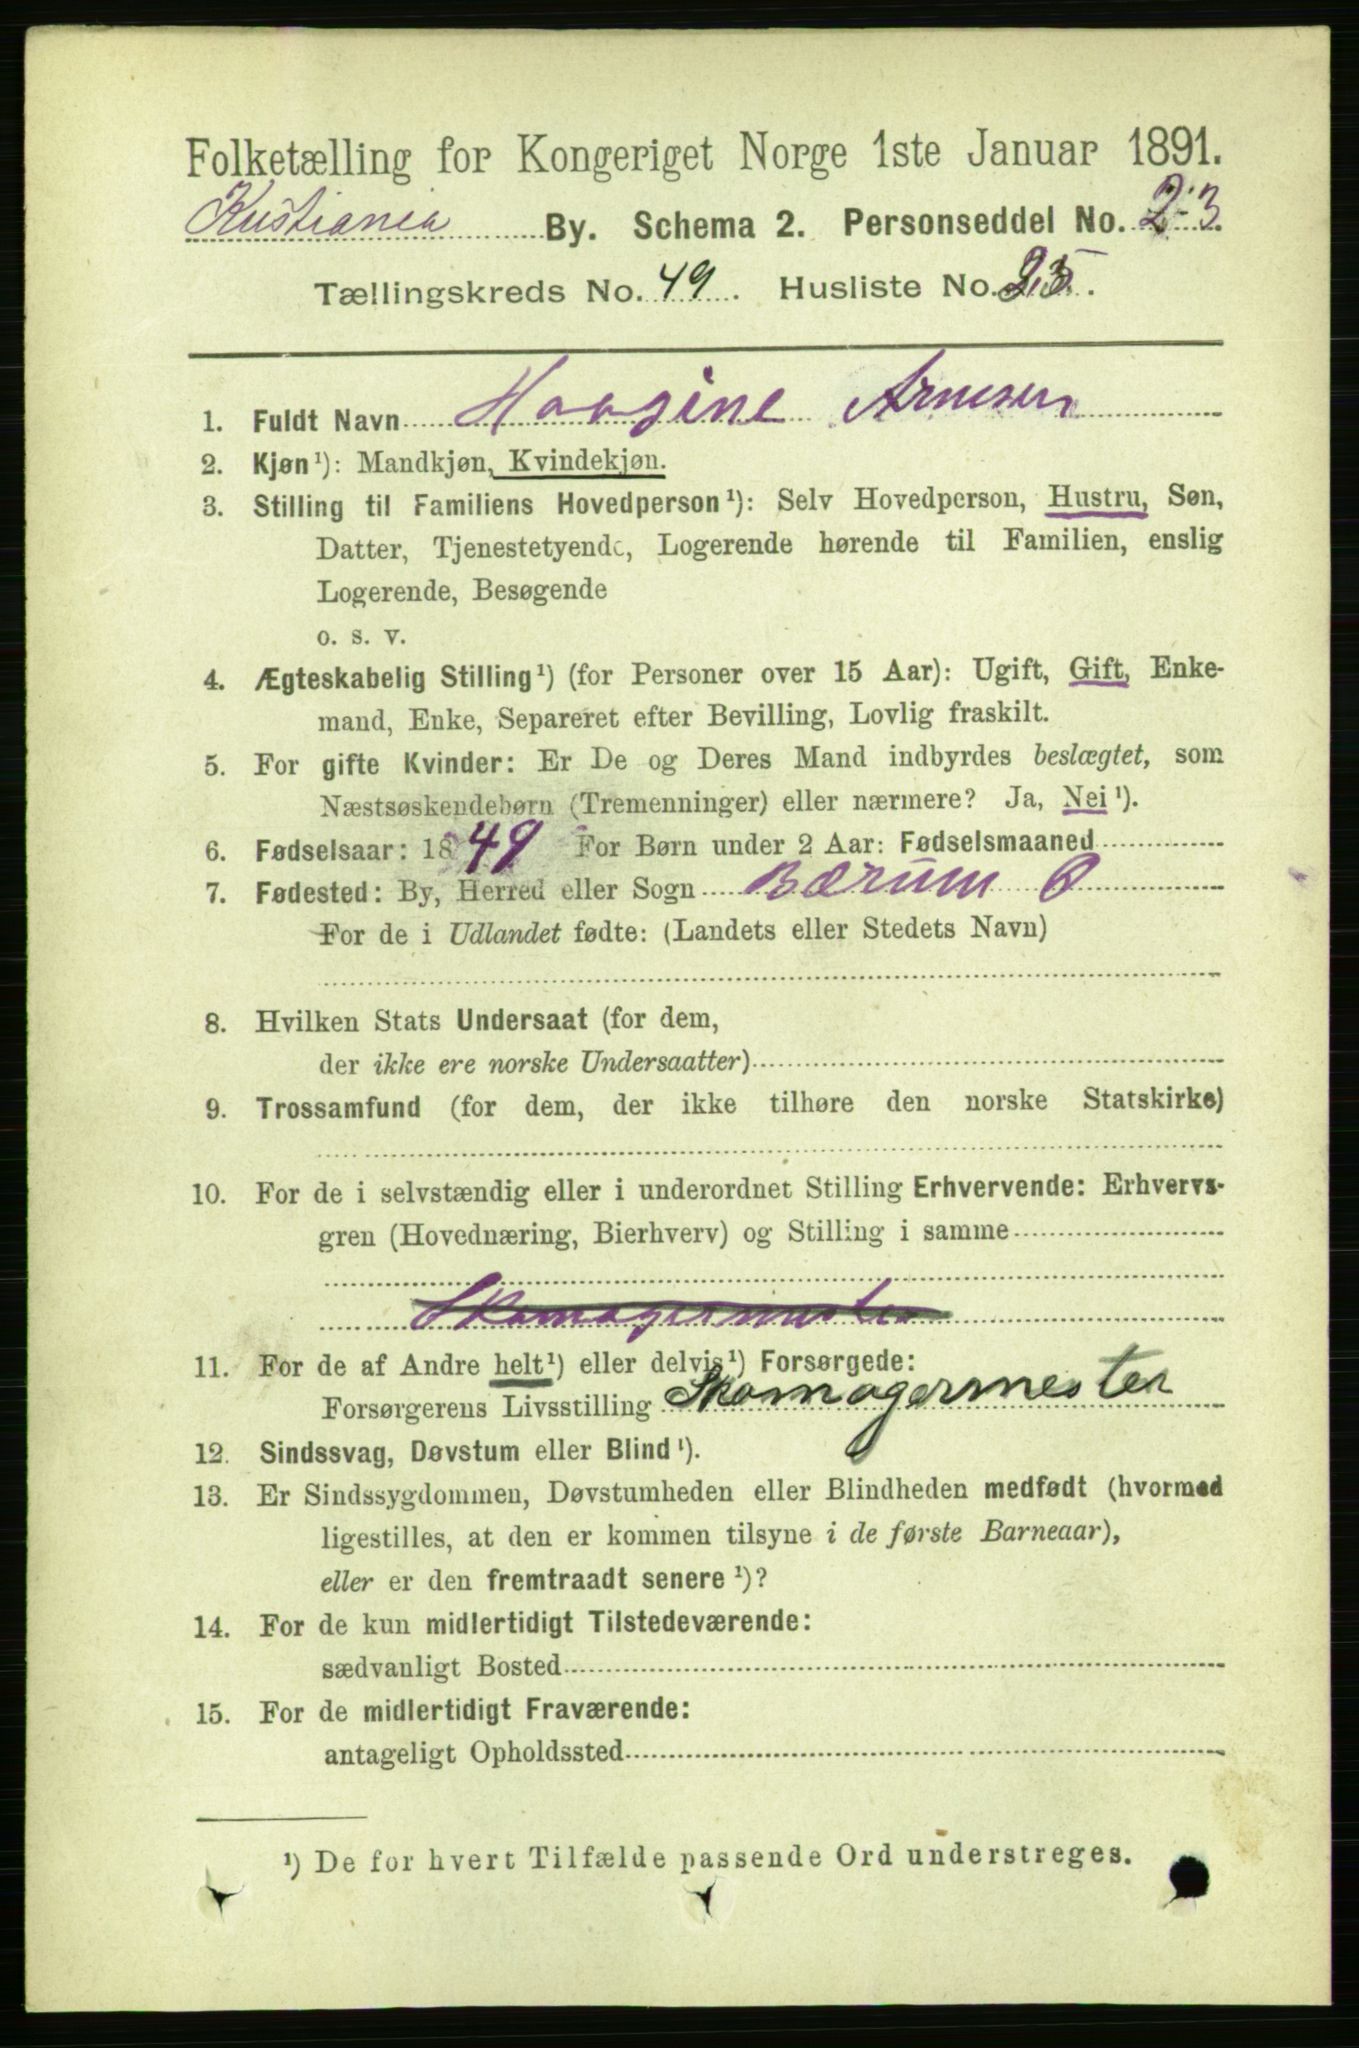 Folketælling for Kongeriget Norge 1ste Januar 1891.
Kristiania By. Schema 2. Personseddel No. 23.
Tællingskreds No. 49. Husliste No. 25.
1. Fuldt Navn Haagine Arnesen
2. Kjøn¹): Mandkjøn, Kvindekjøn.
3. Stilling til Familiens Hovedperson¹): Selv Hovedperson, Hustru, Søn,
Datter, Tjenestetyende, Logerende hørende til Familien, enslig
Logerende, Besøgende
o. s. v.
4. Ægteskabelig Stilling¹) (for Personer over 15 Aar): Ugift, Gift, Enke-
mand, Enke, Separeret efter Bevilling, Lovlig fraskilt.
5. For gifte Kvinder: Er De og Deres Mand indbyrdes beslægtet, som
Næstsøskendebørn (Tremenninger) eller nærmere? Ja, Nei¹).
6. Fødselsaar: 1849 For Børn under 2 Aar: Fødselsmaaned
7. Fødested: By, Herred eller Sogn Bærum
For de i Udlandet fødte: (Landets eller Stedets Navn)
8. Hvilken Stats Undersaat (for dem,
der ikke ere norske Undersaatter)
9. Trossamfund (for dem, der ikke tilhøre den norske Statskirke)
10. For de i selvstændig eller i underordnet Stilling Erhvervende: Erhvervs-
gren (Hovednæring, Bierhverv) og Stilling i samme
Skomagermester
11. For de af Andre helt¹) eller delvis¹) Forsørgede:
Forsørgerens Livsstilling Skomagermester
12. Sindssvag, Døvstum eller Blind¹).
13. Er Sindssygdommen, Døvstumheden eller Blindheden medfødt (hvormed
ligestilles, at den er kommen tilsyne i de første Barneaar),
eller er den fremtraadt senere¹)?
14. For de kun midlertidigt Tilstedeværende:
sædvanligt Bosted
15. For de midlertidigt Fraværende:
antageligt Opholdssted
¹) De for hvert Tilfælde passende Ord understreges.